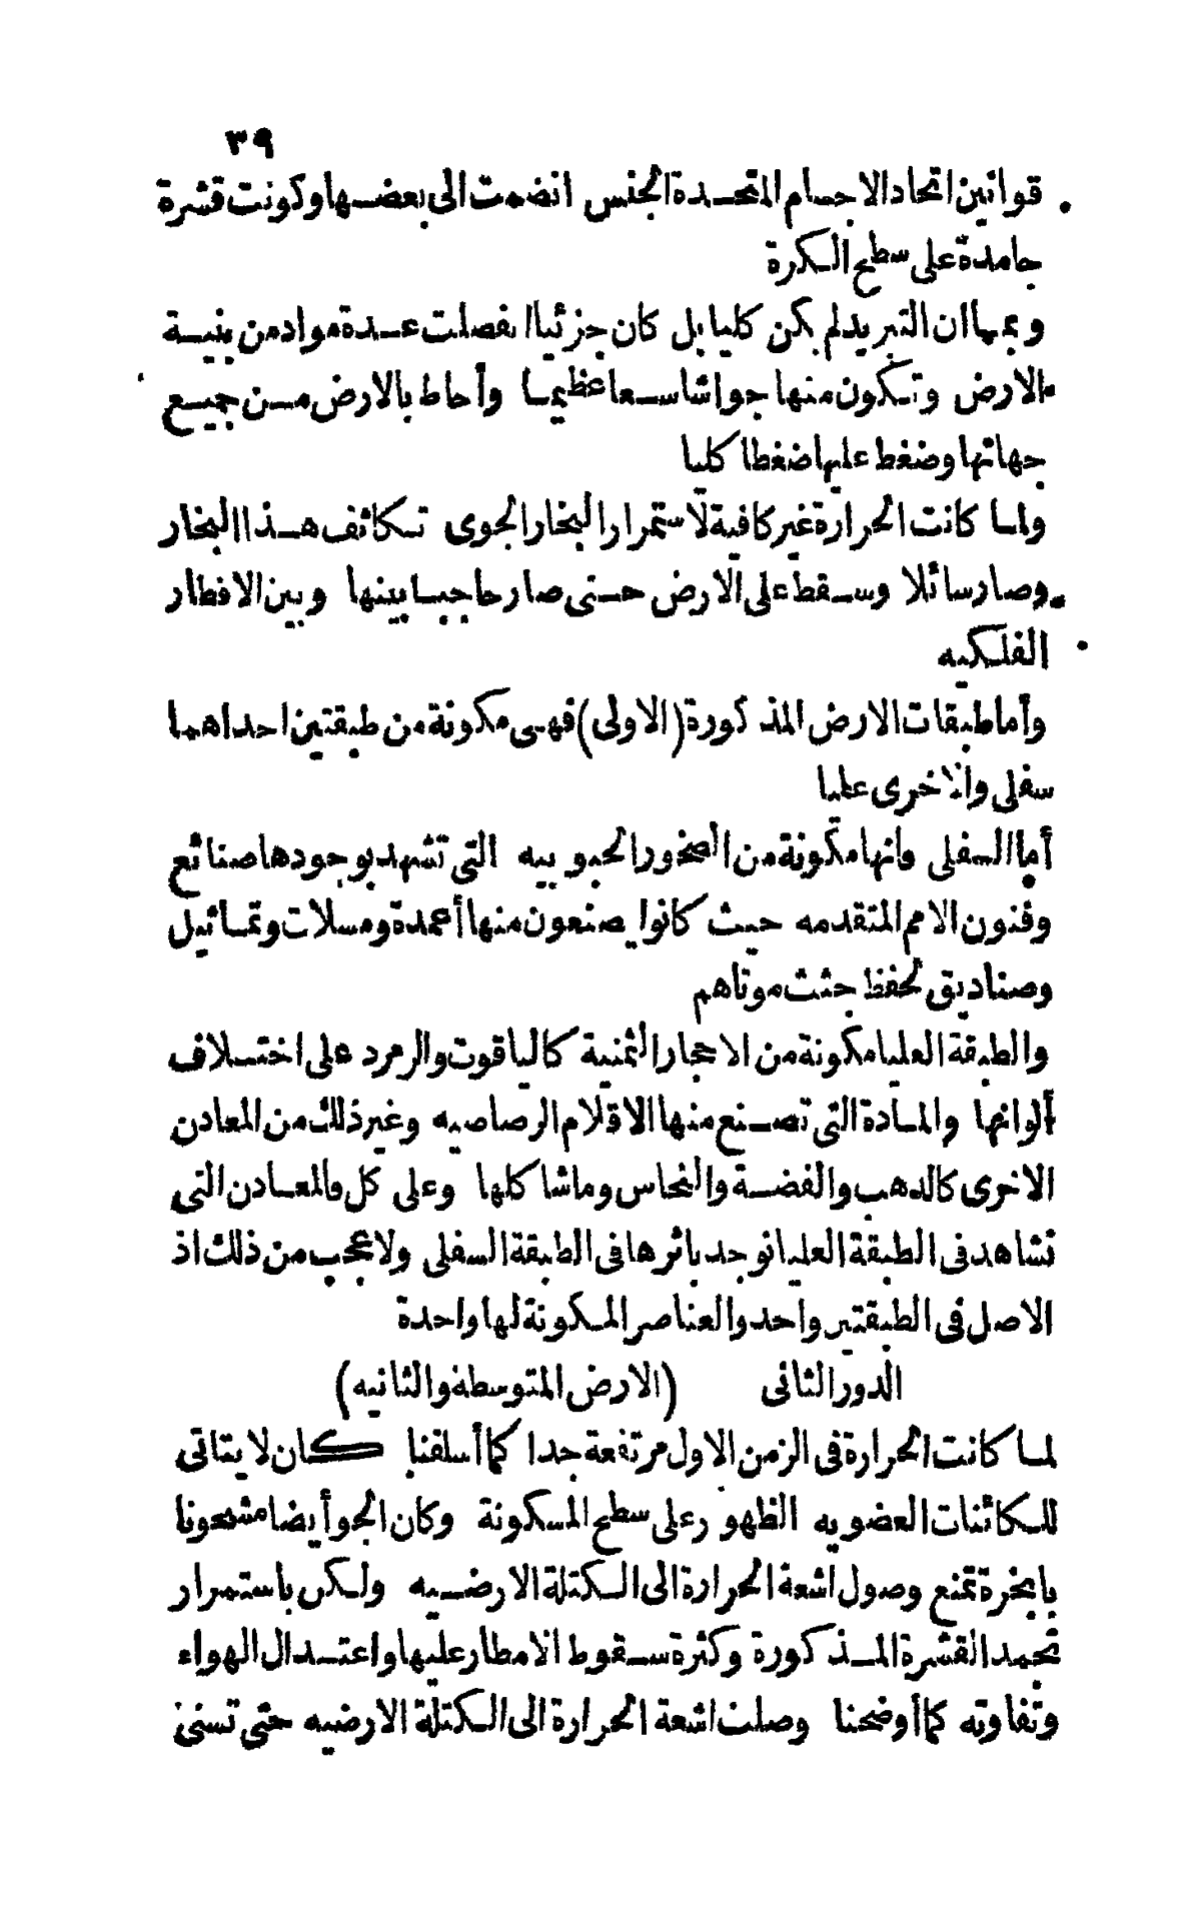 ٣٩
قوانين اتحاد الاجسام المتحدة الجنس انضمت الى بعضها وكونت قشرة
جامدة على سطح الكرة
وبما ان التبريد لم يكن كليا بل كان جزئيا انفصلت عدة مواد من بنية
الارض وتكون منها جوا شاسعا عظيما وأحاط بالارض من جميع
جهاتها وضغط عليها ضغطا كليا
ولما كانت الحرارة غير كافية لاستمرار البخار الجوى تكاثف هذا البخار
وصار سائلا وسقط على الارض حتى صار حاجبا بينها وبين الاقطار
الفلكيه
وأما طبقات الارض المذكورة (الاولى) فهى مكونة من طبقتين احداهما
سفلى والاخرى عليا
أما السفلى فانها مكونة من الصخور الحبوبيه التى تشهد بوجودها صنائع
وفنون الامم المتقدمه حيث كانوا يصنعون منها أعمدة ومسلات وتماثيل
وصناديق لحفظ جثث موتاهم
والطبقة العليا مكونة من الاحجار الثمنية كالياقوت والزمرد على اختلاف
ألوانها والمادة التى تصنع منها الاقلام الرصاصيه وغير ذلك من المعادن
الاخرى كالدهب والفضة والنحاس وما شاكلها وعلى كل فالمعادن التى
تشاهد فى الطبقة العليا توجد باثرها فى الطبقة السفلى ولا عجب من ذلك اذ
الاصل فى الطبقتين واحد والعناصر المكونة لها واحدة
الدور الثانى (الارض المتوسطة والثانيه)
لما كانت الحرارة فى الزمن الاول مرتفعة جدا كما أسلفنا كان لا يتاتى
للكائنات العضويه الظهور على سطح المسكونة وكان الجو أيضا مشحونا
بابخرة تمنع وصول اشعة الحرارة الى الكتلة الارضيه ولكن باستمرار
تجمد القشرة المذكورة وكثرة سقوط الامطار عليها واعتدال الهواء
وتفاوته كما أوضحنا وصلت اشعة الحرارة الى الكتلة الارضيه حتى تسنى